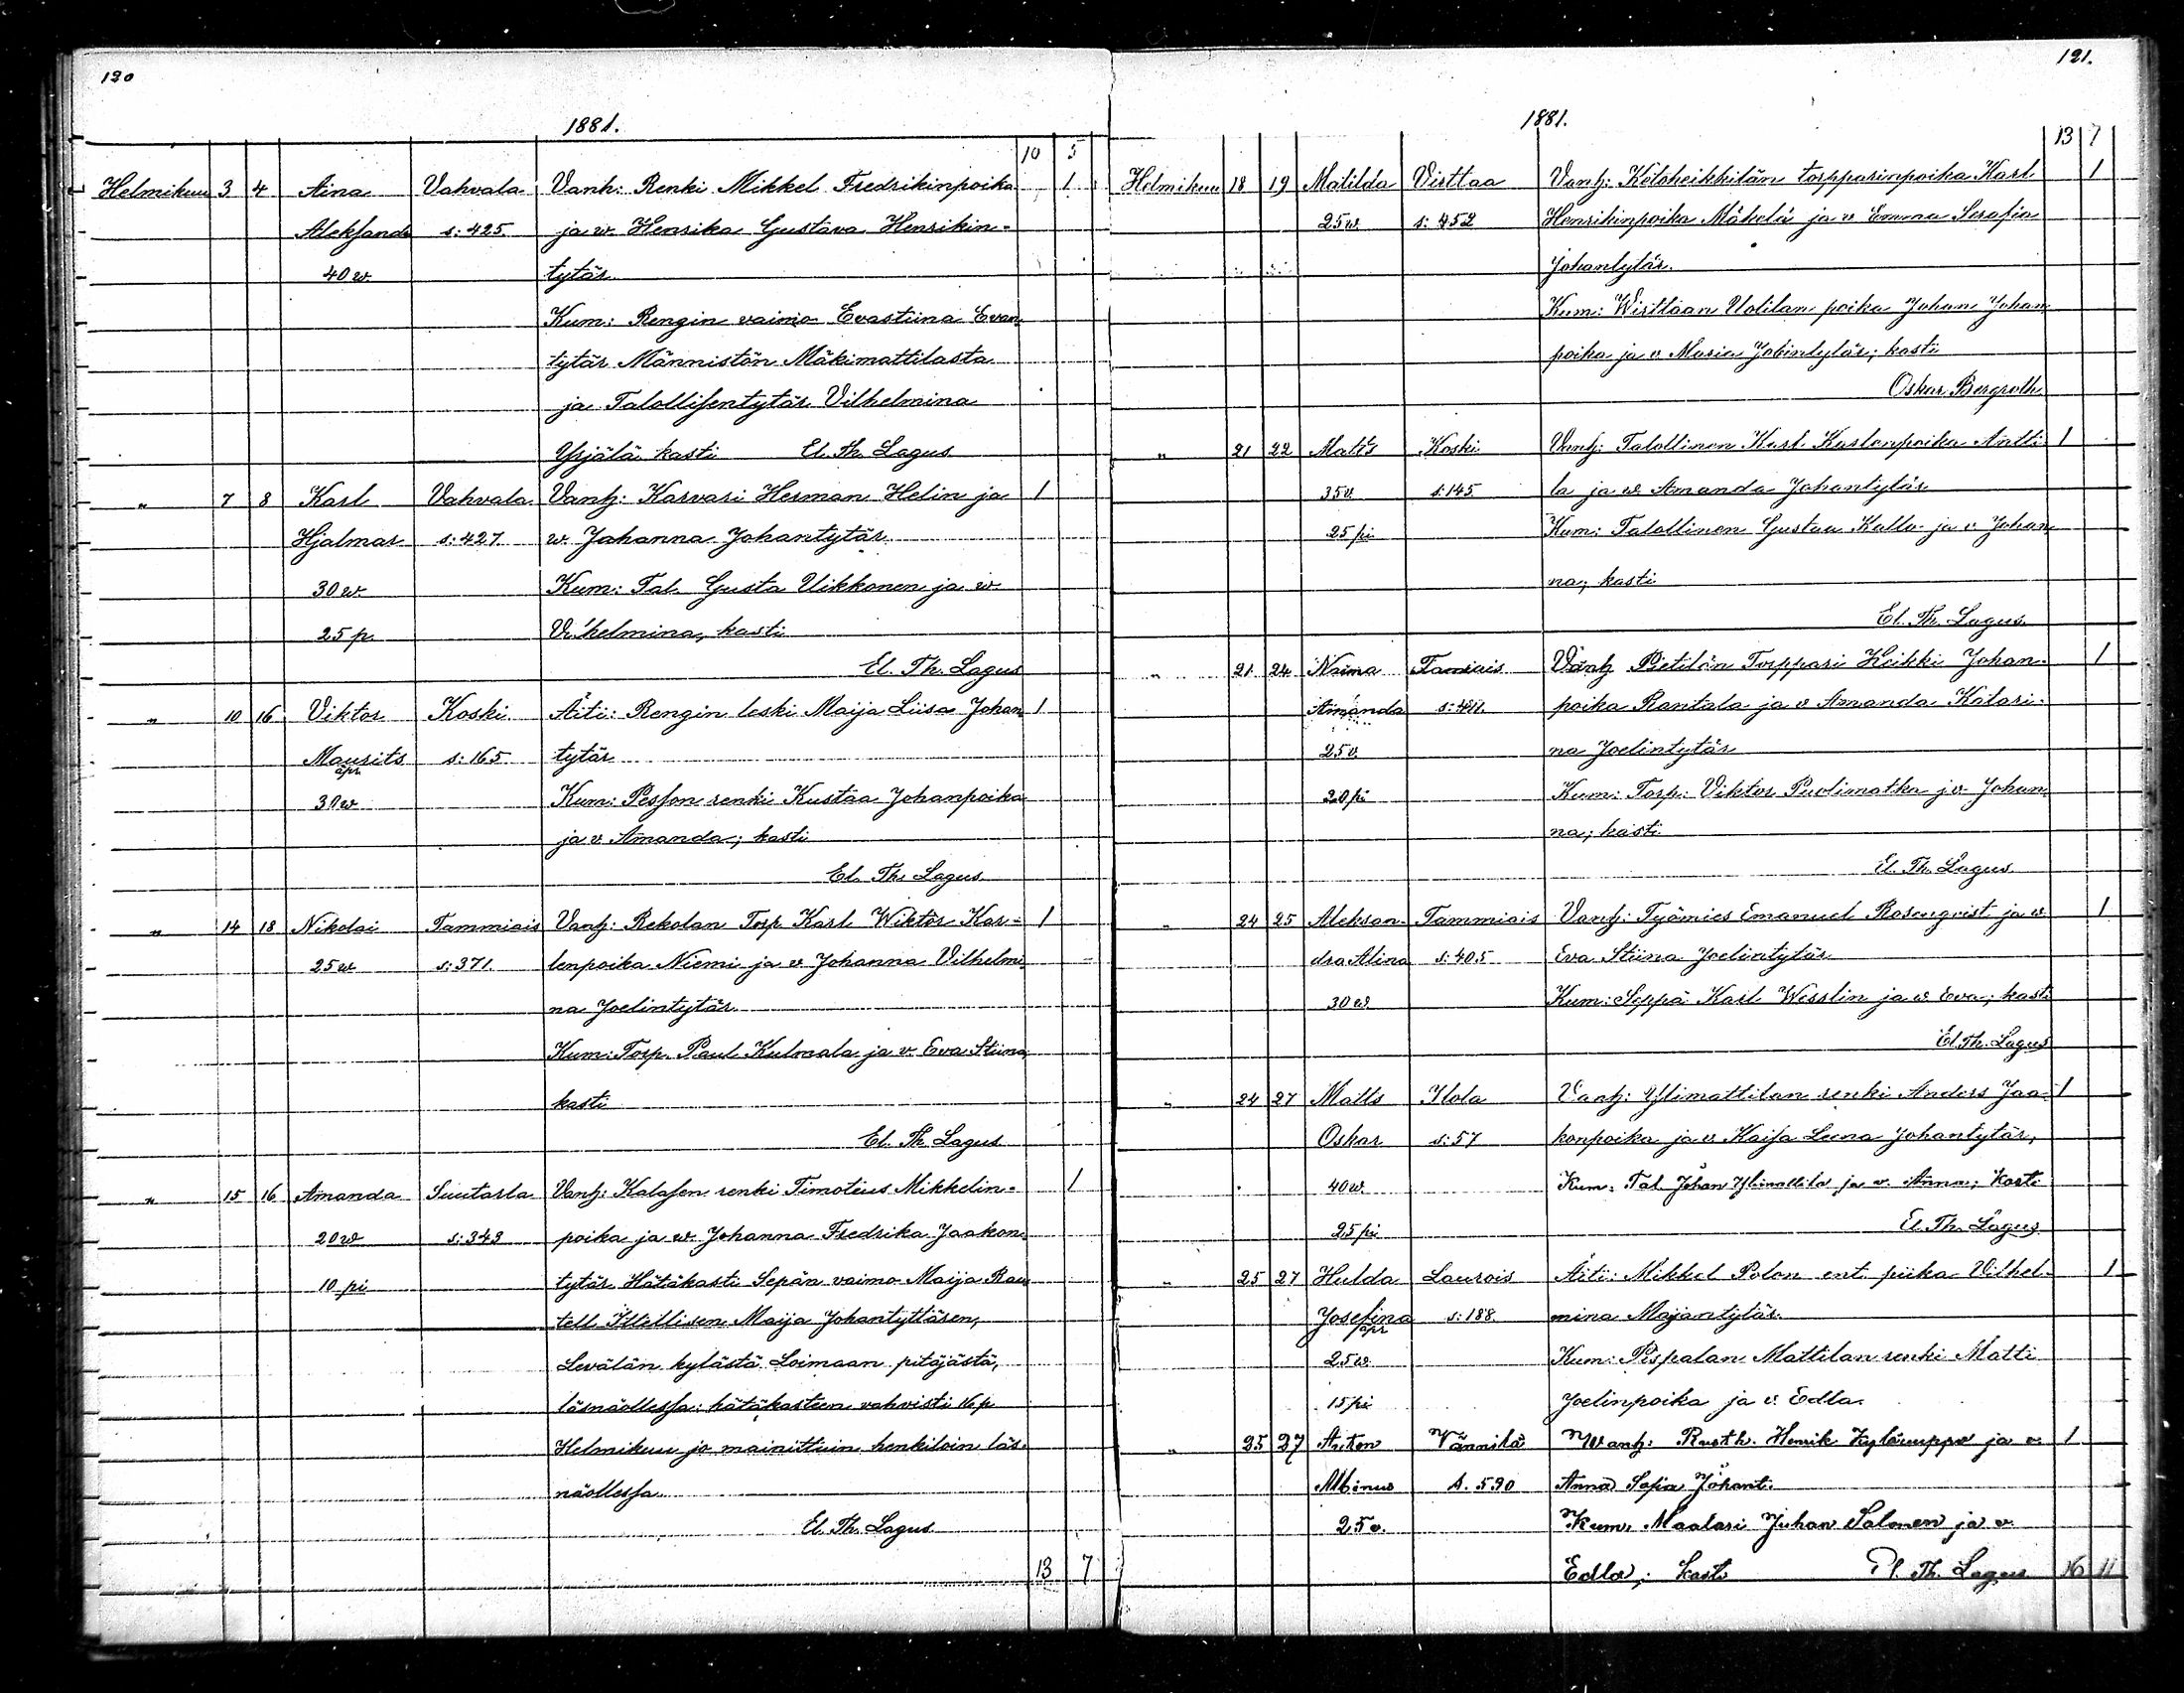 120
1881.
10 5
Helmikuu 3 4 Aina Vahvala Vanh: Renki Mikkel Fredrikinpoika 1
Aleksand s: 425. ja w. Henrika Gustava Henrikin-
40 w. tytär
Kum: Rengin vaimo Evastiina Evan
tytär Männistön Mäkimattilasta
ja Talollisentytär Vilhelmina
Yrjälä kasti El. Th. Lagus
" 7 8 Karl Vahvala Vanh: Karvari Herman Helin ja 1
Hjalmar s: 427. w Johanna Johantytär
30 w. Kum: Tal. Gusta Uikkonen ja w.
25 p. Vilhelmina, kasti
El. Th. Lagus
" 10 16 Viktor Koski Äiti: Rengin leski Maija Liisa Johan 1
Maurits s: 165. tytär
äpr.
30 w Kum: Pesson renki Kustaa Johanpoika
ja v Amanda; kasti
El. Th. Lagus
" 14 18 Nikolai Tammiais Vanh: Rekolan Torp Karl Wiktor Kar- 1
25 w s: 371. lenpoika Niemi ja v Johanna Vilhelmi
na Joelintytär
Kum: Torp. Paul Kulmala ja v. Eva Stiina
kasti
El. Th Lagus
" 15 16 Amanda Suutarla Vanh: Kalasen renki Timoteus Mikkelin- 1
20 w s: 343 poika ja w. Johanna Fredrika Jaakon
10 pi tytär Hätäkasti Sepän vaimo Maija Ran
tell Maija Johantyttären,
Levälän kylästä Loimaan pitäjästä,
läsnäollessa; hätäkasteen vahvisti 16 p
Helmikuu jo mainittuin henkilöin läs
näollessa
El. Th. Lagus
13 7
121.
1881.
13 7
Helmikuu 18 19 Matilda Virttaa Vanh: Keloheikkilän torpparinpoika Karl 1
25 w. s: 452 Henrikinpoika Mäkelä ja v Emma Serafia
Johantytär.
Kum: Wirttaan Uotilan poika Johan Johan
poika ja v Maria Jobintytär; kasti
Oskar Bergroth
" 21 22 Matts Koski Vanh: Talollinen Karl Karlenpoika Antti 1
35 v. s: 145 la ja w Amanda Johantytär
25 pi Kum: Talollinen Gustaa Kallo ja v Johan
na; kasti
El. Th. Lagus.
" 21 24 Naima Tamiais Vanh Pietilän Torppari Heikki Johan- 1
Amanda poika Rantala ja v Amanda Katari-
25 v. na Joelintytär
20 pi Kum: Torp: Viktor Puolimatka j v Johan
na; kasti
El. Th. Lagus
" 24 25 Aleksan- Tammiais Vanh: Työmies Emanuel Rosenqvist ja w 1
dra Alina s: 405 Eva Stiina Joelintytär
30 w Kum: Seppä Karl Wesslin ja w Eva; kasti
El. Th. Lagus
" 24 27 Matts Ylola Vanh: Ylimattilan renki Anders Jaa- 1
Oskar s: 57 konpoika ja v Kaisa Leena Johantytär,
40 w. Kum: Tal Johan Ylimattila ja w. Anna; Kasti
25 pi El. Th. Lagus
" 25 27 Hulda Laurois Äiti: Mikkel Polon ent. piika Vilhel- 1
Josefina s: 188. mina Majantytär.
äpr
25 w. Kum: Pispalan Mattilan renki Matti
15 pi Joelinpoika ja v. Edla.
" 25 27 Anton Vännilä Wanh: Rusth. Henrik Kylänuppo ja v. 1
Albinus s. 590 Anna Sofia Johant.
25 v. Kum. Maalari Juhan Salonen ja v
Edla; Kasti El. Th. Lagus 16 11